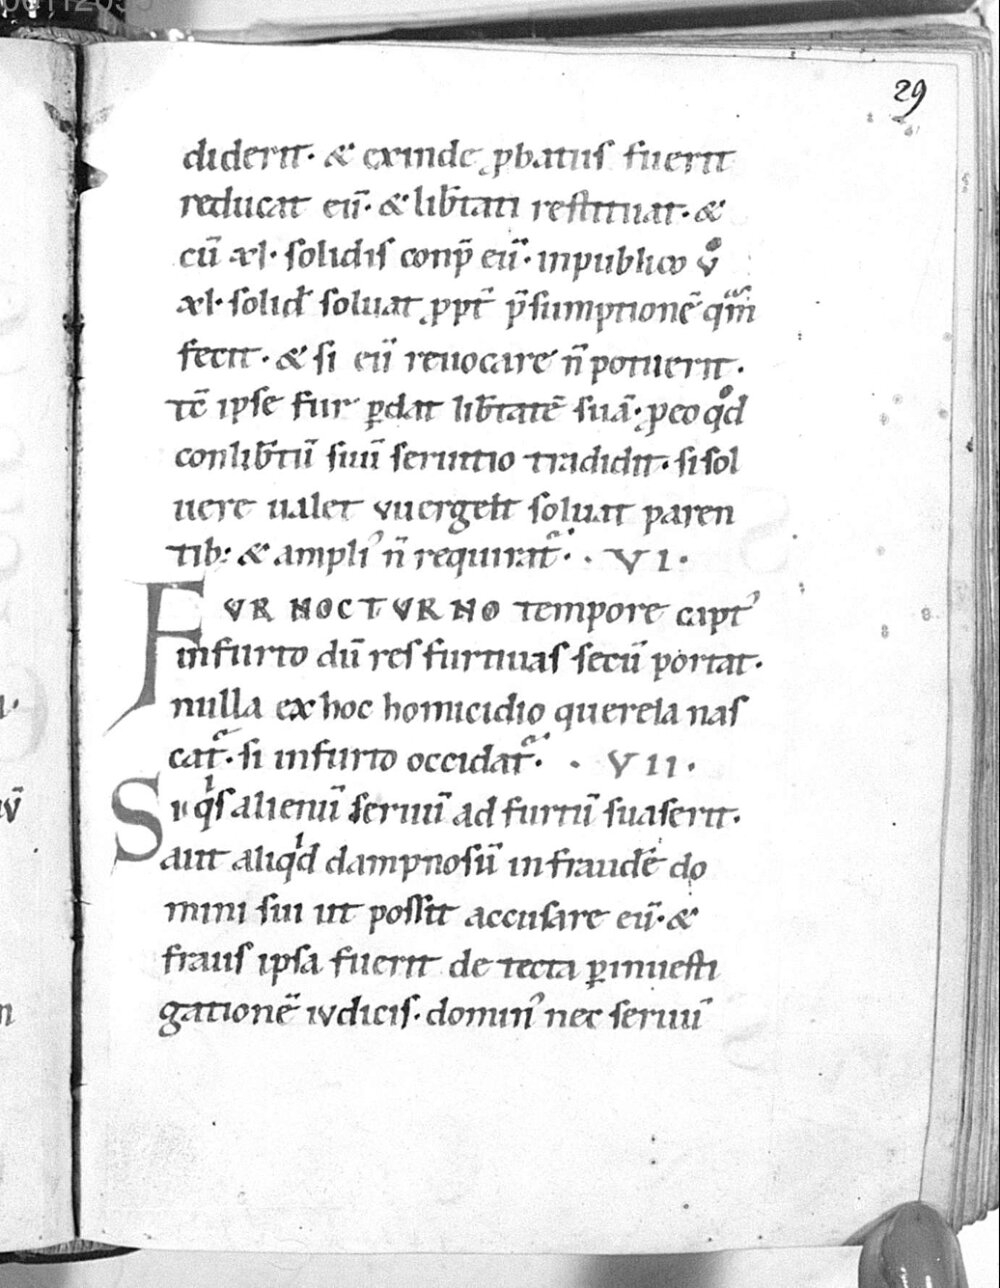 29
diderit· & exinde ꝓbatus fuerit
reducat eū· & lib̄tati restituat· &
cū xl· solidis conp̄ eū· inpublico v̊
xl· solid̄ soluat ꝓpt̄ p̄sumptionē qm̄
fecit· & si eū reuocare n̄ potuerit·
tc̄ ipse fur ꝑdat lib̄tatē suā· ꝓeo qd
conlib̄tū suū seruitio tradidit· si sol
uere ualet vuergelt soluat paren
tib: & ampli᾽ n̄ requirat᷑· · VI ·
FVR NOCTVRNO tempore capt᾽
infurto dū res furtiuas secū portat·
nulla ex hoc homicidio querela nas
cat᷑· si infurto occidat᷑· · VII ·
Si qͥs alienū seruū ad furtū suaserit·
aut aliqͥd dampnosū in fraudē do
mini sui ut possit accusare eū· &
fraus ipsa fuerit de tecta ꝑinuesti
gationē iudicis· domin᾽ nec seruū